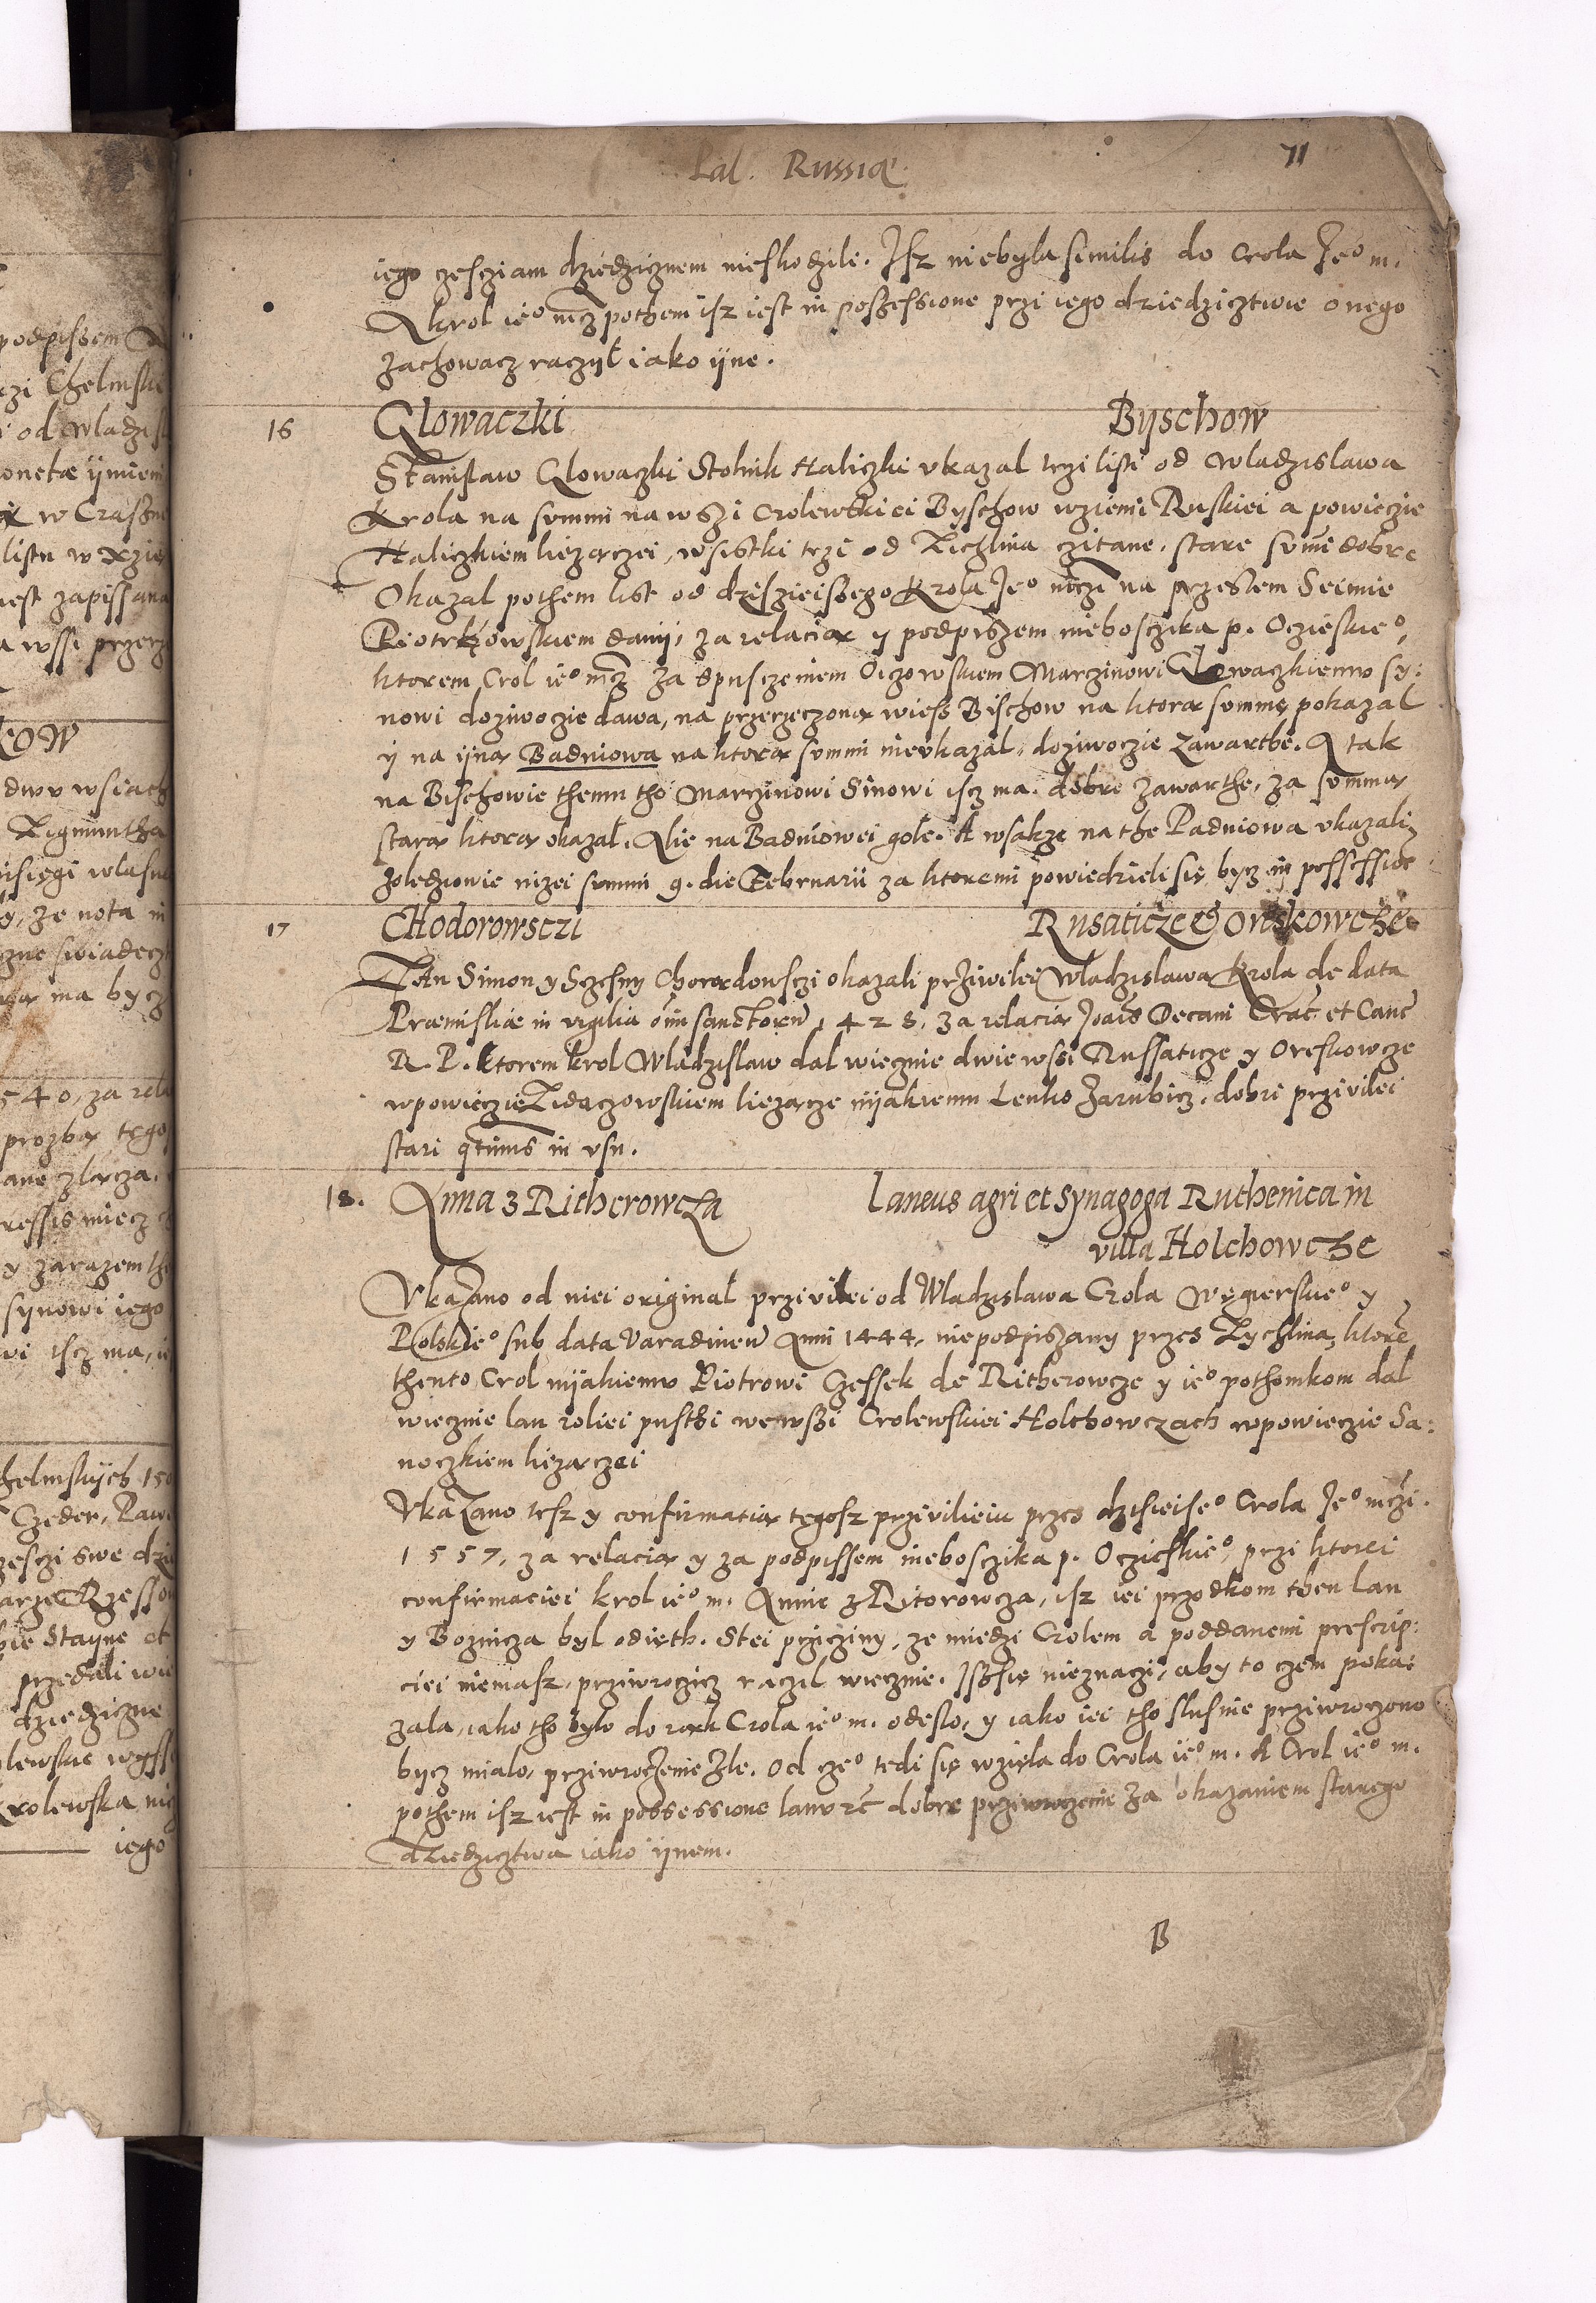 Pal. Russiæ
71
iego czesciam dziedzicznem nieskodzili. Isz niebyla similis do Crola Je° m.
A krol ie° mcz pothem isz iest in possessione przi iego dziedzicztwie onego
zachowacz raczył iako ijne.
16 Glowaczki Byschow
Stanisław Glowaczki Stolnik Haliczki vkazal trzi listi od Wladzislawa
Krola na summi na wszi Crolewskiei Byschow wziemi Ruskiei a powieczie
Haliczkiem liezączei, wsistki trzi od Lichlina czitane, stare summi dobre
Okazal pothem list od dzisieiszego Krola Je° mczi na przeslem Seimie
Piotrkowskiem danij, za relacią y podpiszem nieboszczika p. Oczieskie°,
ktorem Crol ie° mcz za spuszczeniem Oiczowskiem Marczinowi Glowaczkiemu sy:
nowi doziwoczie dawa, na przerzeczoną wiess Bischow na ktorą summę pokazal
y na ijną Badniowa na ktorą summi nievkazal, doziwoczie zawarthe. A tak
na Bischowie themu tho Marczinowi Sinowi iscz ma dobre zawarthe, za summą
starą ktorą okazał. Alie na Badniowei gole. A wsakze na the Padniowa vkazali
Zoledziowie nizei summi 9. die Februarii za ktoremi powiedzieli się bycz in possessione
17 CHodorowsczi Rusaticze & Oreskowcze
PAn Simon y Sczesny Chorodowsczi okazali prziwilei Wladzislawa Krola de data
Præmisliæ in vigilia omnium sanctorum 1428, za relacią Joannis Decani Crac et Canc
R. P. ktorem krol Wladzislaw dal wiecznie dwie wsi Russaticze y Oreskowcze
wpowieczie Zidaczowskiem liezącze nijakiemu Lenko Zarubicz, dobri przivilei
stari quatenus in vsu.
18. Anna z Ritherowcza Laneus agri et Synagoga Ruthenica in
villa Holchowcze
Vkazano od niei original przivilei od Wladzislawa Crola Węgierskie° y
Polskie° sub data Varadinen Anni 1444, niepodpiszany przes Lychlina, ktorem
thento Crol nijakiemu Piotrowi Czessek de Ritherowcze y ie° pothomkom dal
wiecznie lan roliei pusthi wewszi Crolewskiei Holchowczach wpowieczie Sa:
noczkiem liezączei
Vkazano tesz y confirmatią tegosz przivilieiu przes dzisieise° Crola Je° mczi.
1557, za relacią y za podpissem nieboszczika p. Oczieskie°, przi ktorei
confirmaciei krol ie° m. Annie z Ritorowcza, isz iei przodkom then lan
y Boznicza byl odięth. Stei prziczini, ze miedzi Crolem a poddanemi prescrip:
ciei niemasz, prziwroczicz raczil wiecznie. Isz się nieznaczi, aby to czem poka:
zala, iako tho bylo do rąk Crola ie° m. odeslo, y iako iei tho slusnie prziwroczono
bycz mialo, prziwroczenie zle. Od cze° tedi się wzięla do Crola ie° m. A Crol ie° m.
pothem isz iest in possessione lanu etc dobre prziwroczenie za okazaniem starego
dziedzicztwa iako ijnem.
B